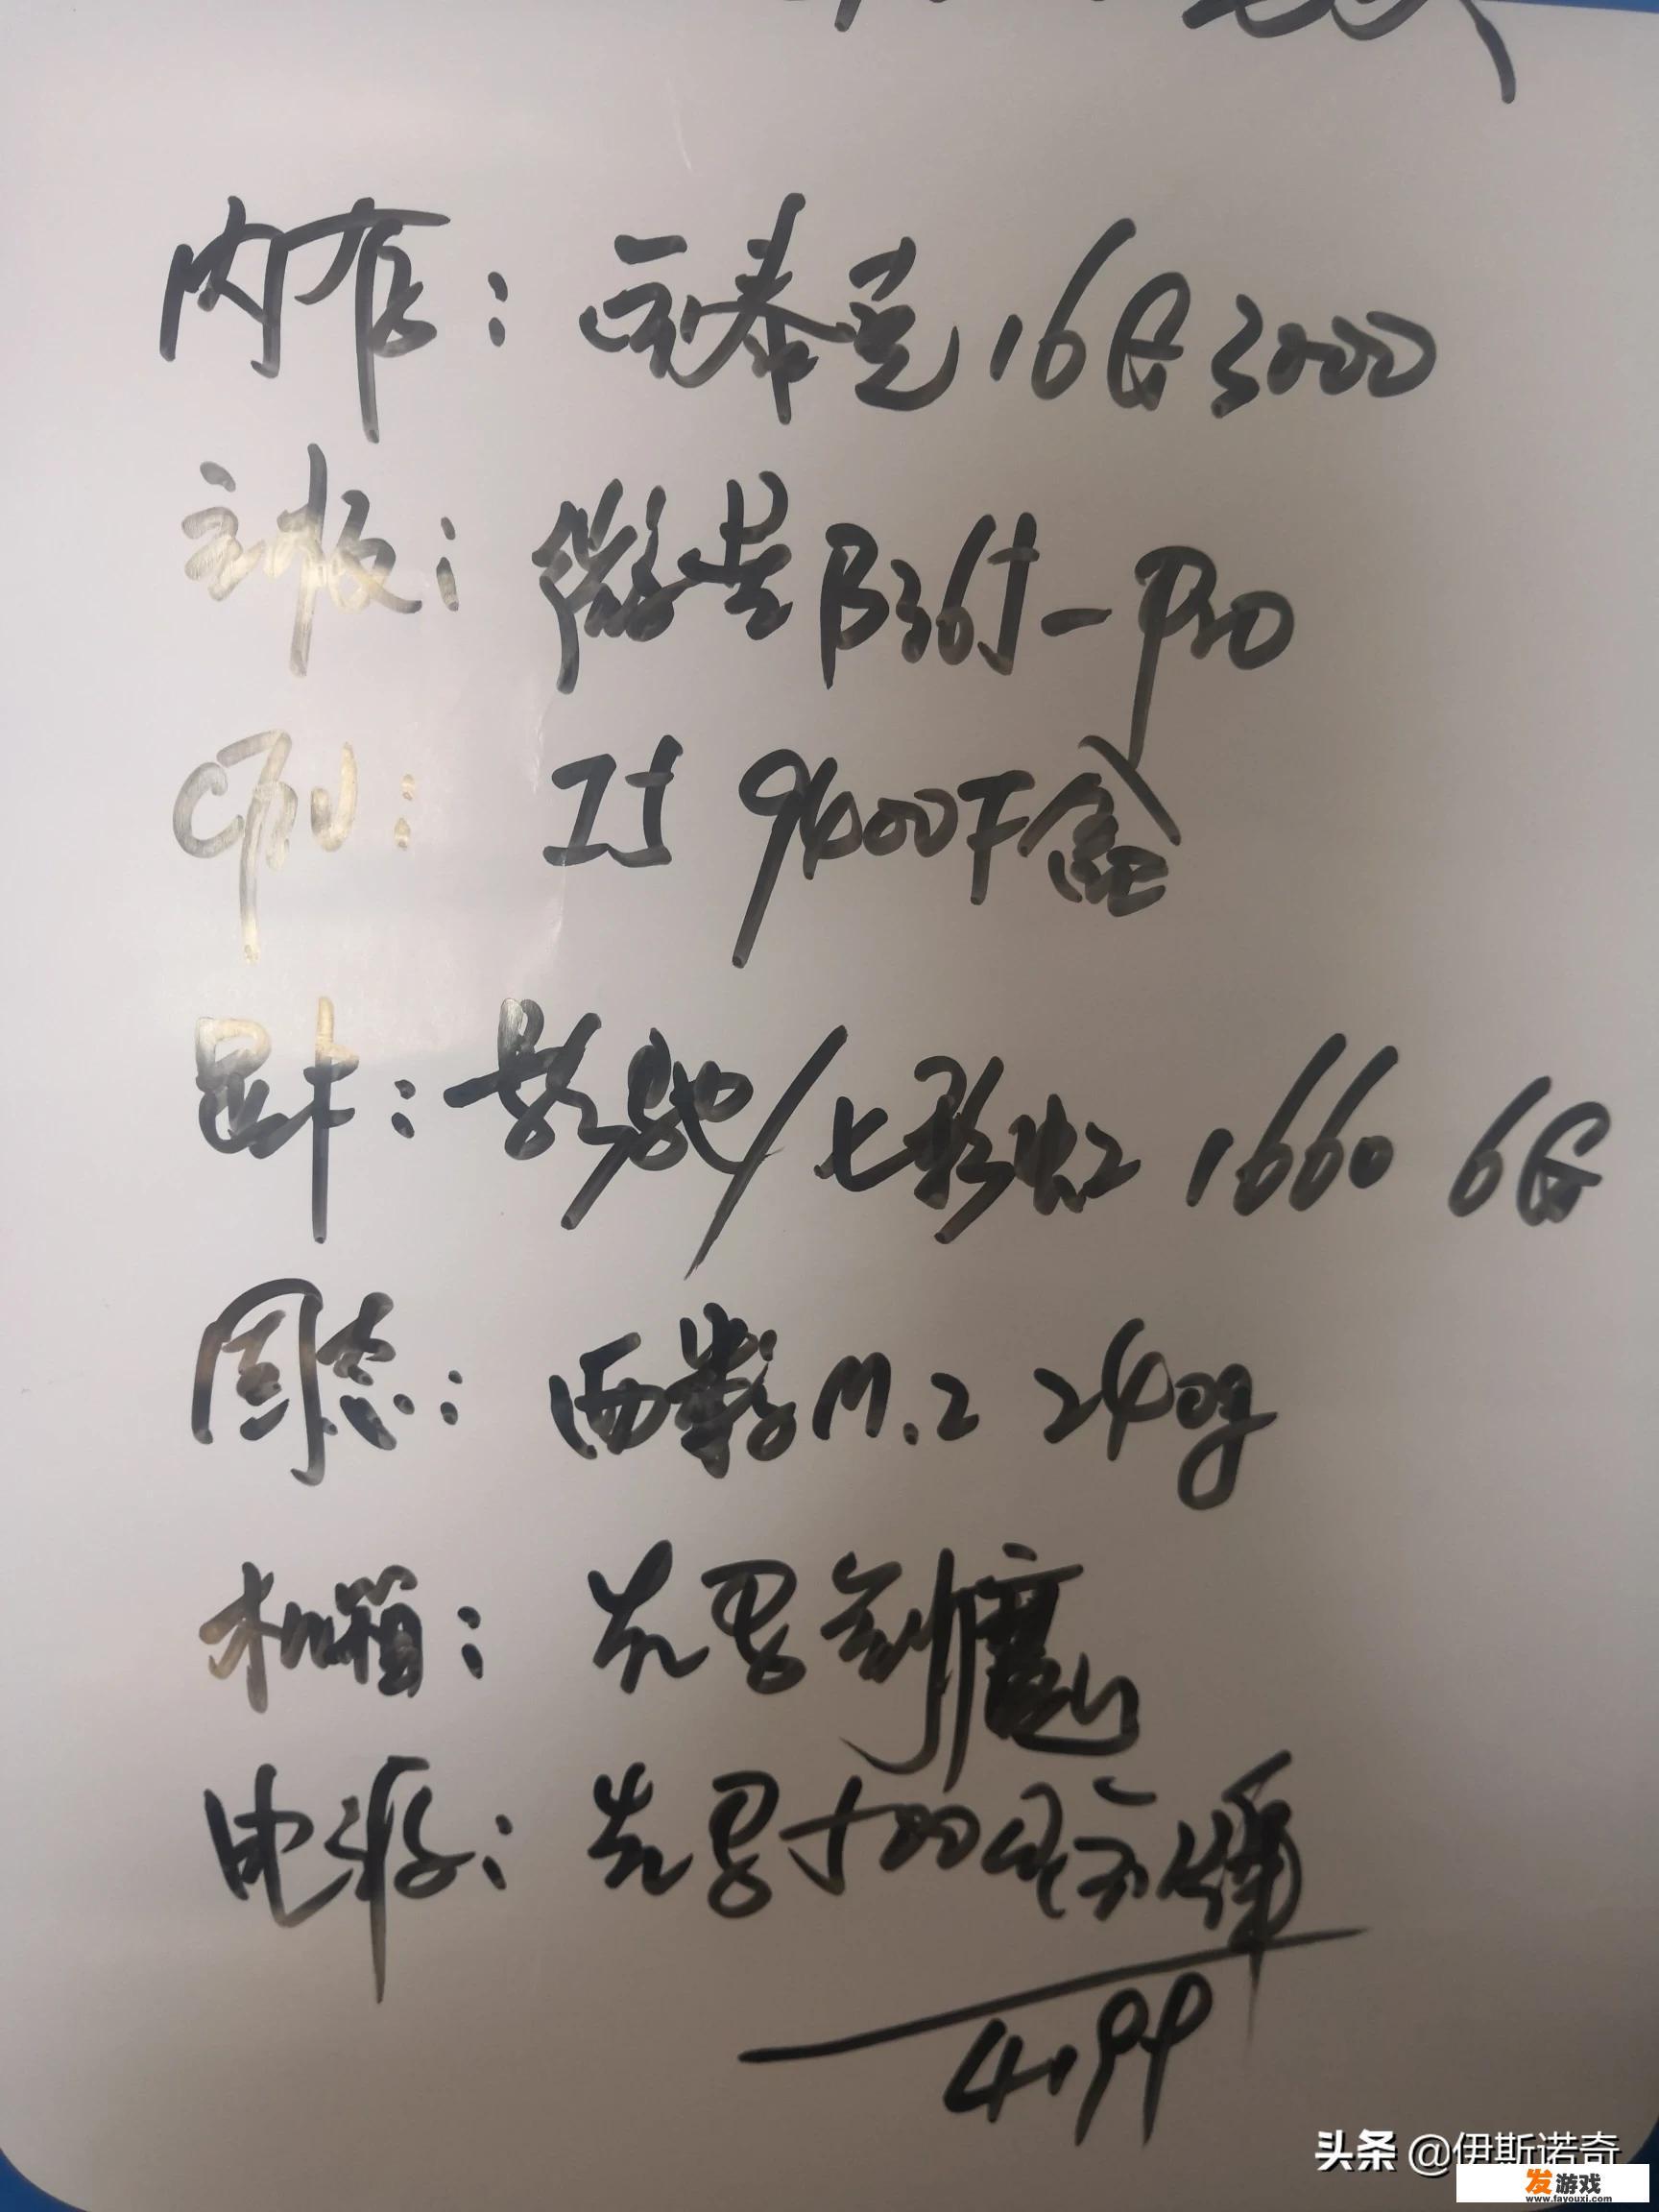 内存：玩泰克16G 3000
主板：微星B365-Pro
CPU：I5 9400F盒
显卡：影驰/七彩虹 1660 6G
固态：西数M.2 240g
机箱：先马剑魔
电源：先马500
4199
头条 @伊斯诺奇
发游戏
www.fayouxi.com